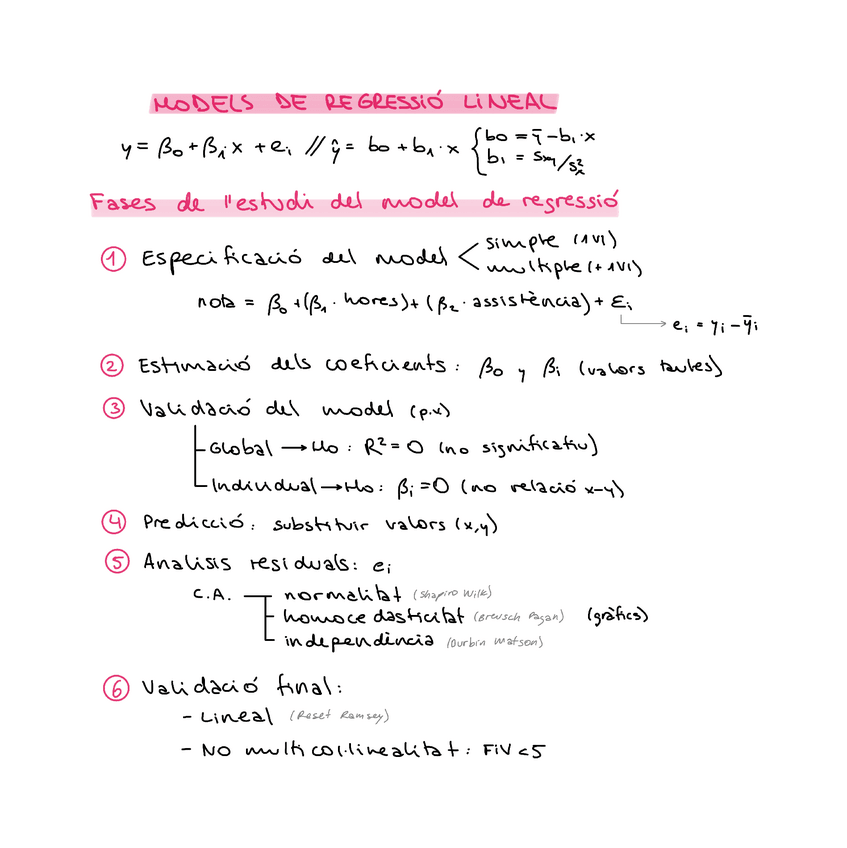 MODELS DE REGRESSIÓ LINEAL
y = β₀ + β₁x + eᵢ // ŷ = b0 + b₁·x { b0 = ȳ - b₁·x
b₁ = Sxy/S²x
Fases de l'estudi del model de regressió
① Especificació del model < simple (1VI)
multiple (+1VI)
nota = β₀ + (β₁ · hores) + (β₂ · assistència) + Ɛᵢ
eᵢ = yᵢ - ȳᵢ
② Estimació dels coeficients: β₀ y βᵢ (valors taules)
③ Validació del model (p.v)
Global → H₀ : R² = 0 (no significatiu)
Individual → H₀ : βᵢ = 0 (no relació x-y)
④ Predicció: substituir valors (x,y)
⑤ Analisis residuals: eᵢ
C.A. normalitat (Shapiro Wilk)
homocedasticitat (Breusch Pagan) (gràfics)
independència (Durbin Watson)
⑥ Validació final:
- Lineal (Reset Ramsey)
- NO multicol·linealitat: FIV < 5